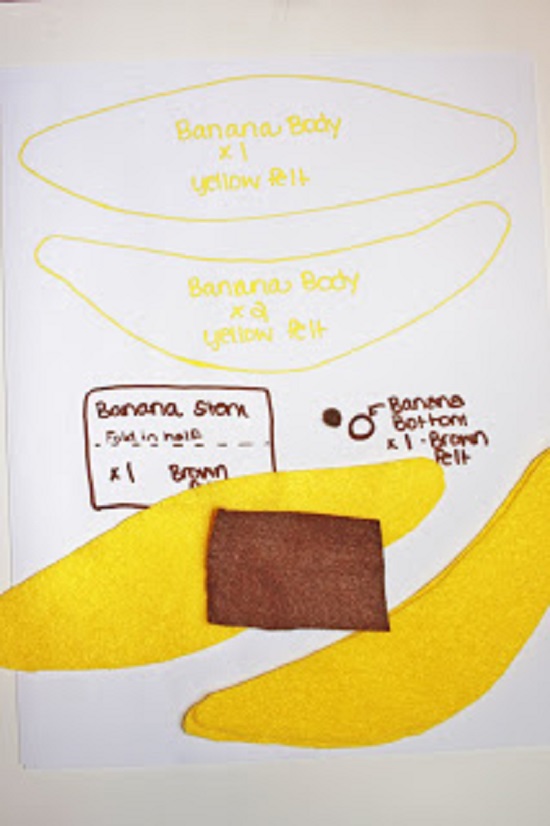 Banana Body
x 1
yellow felt
Banana Body
x 2
yellow felt
Banana Stem
Fold in half
x 1 Brown
Banana
Bottom
x 1 - Brown
felt